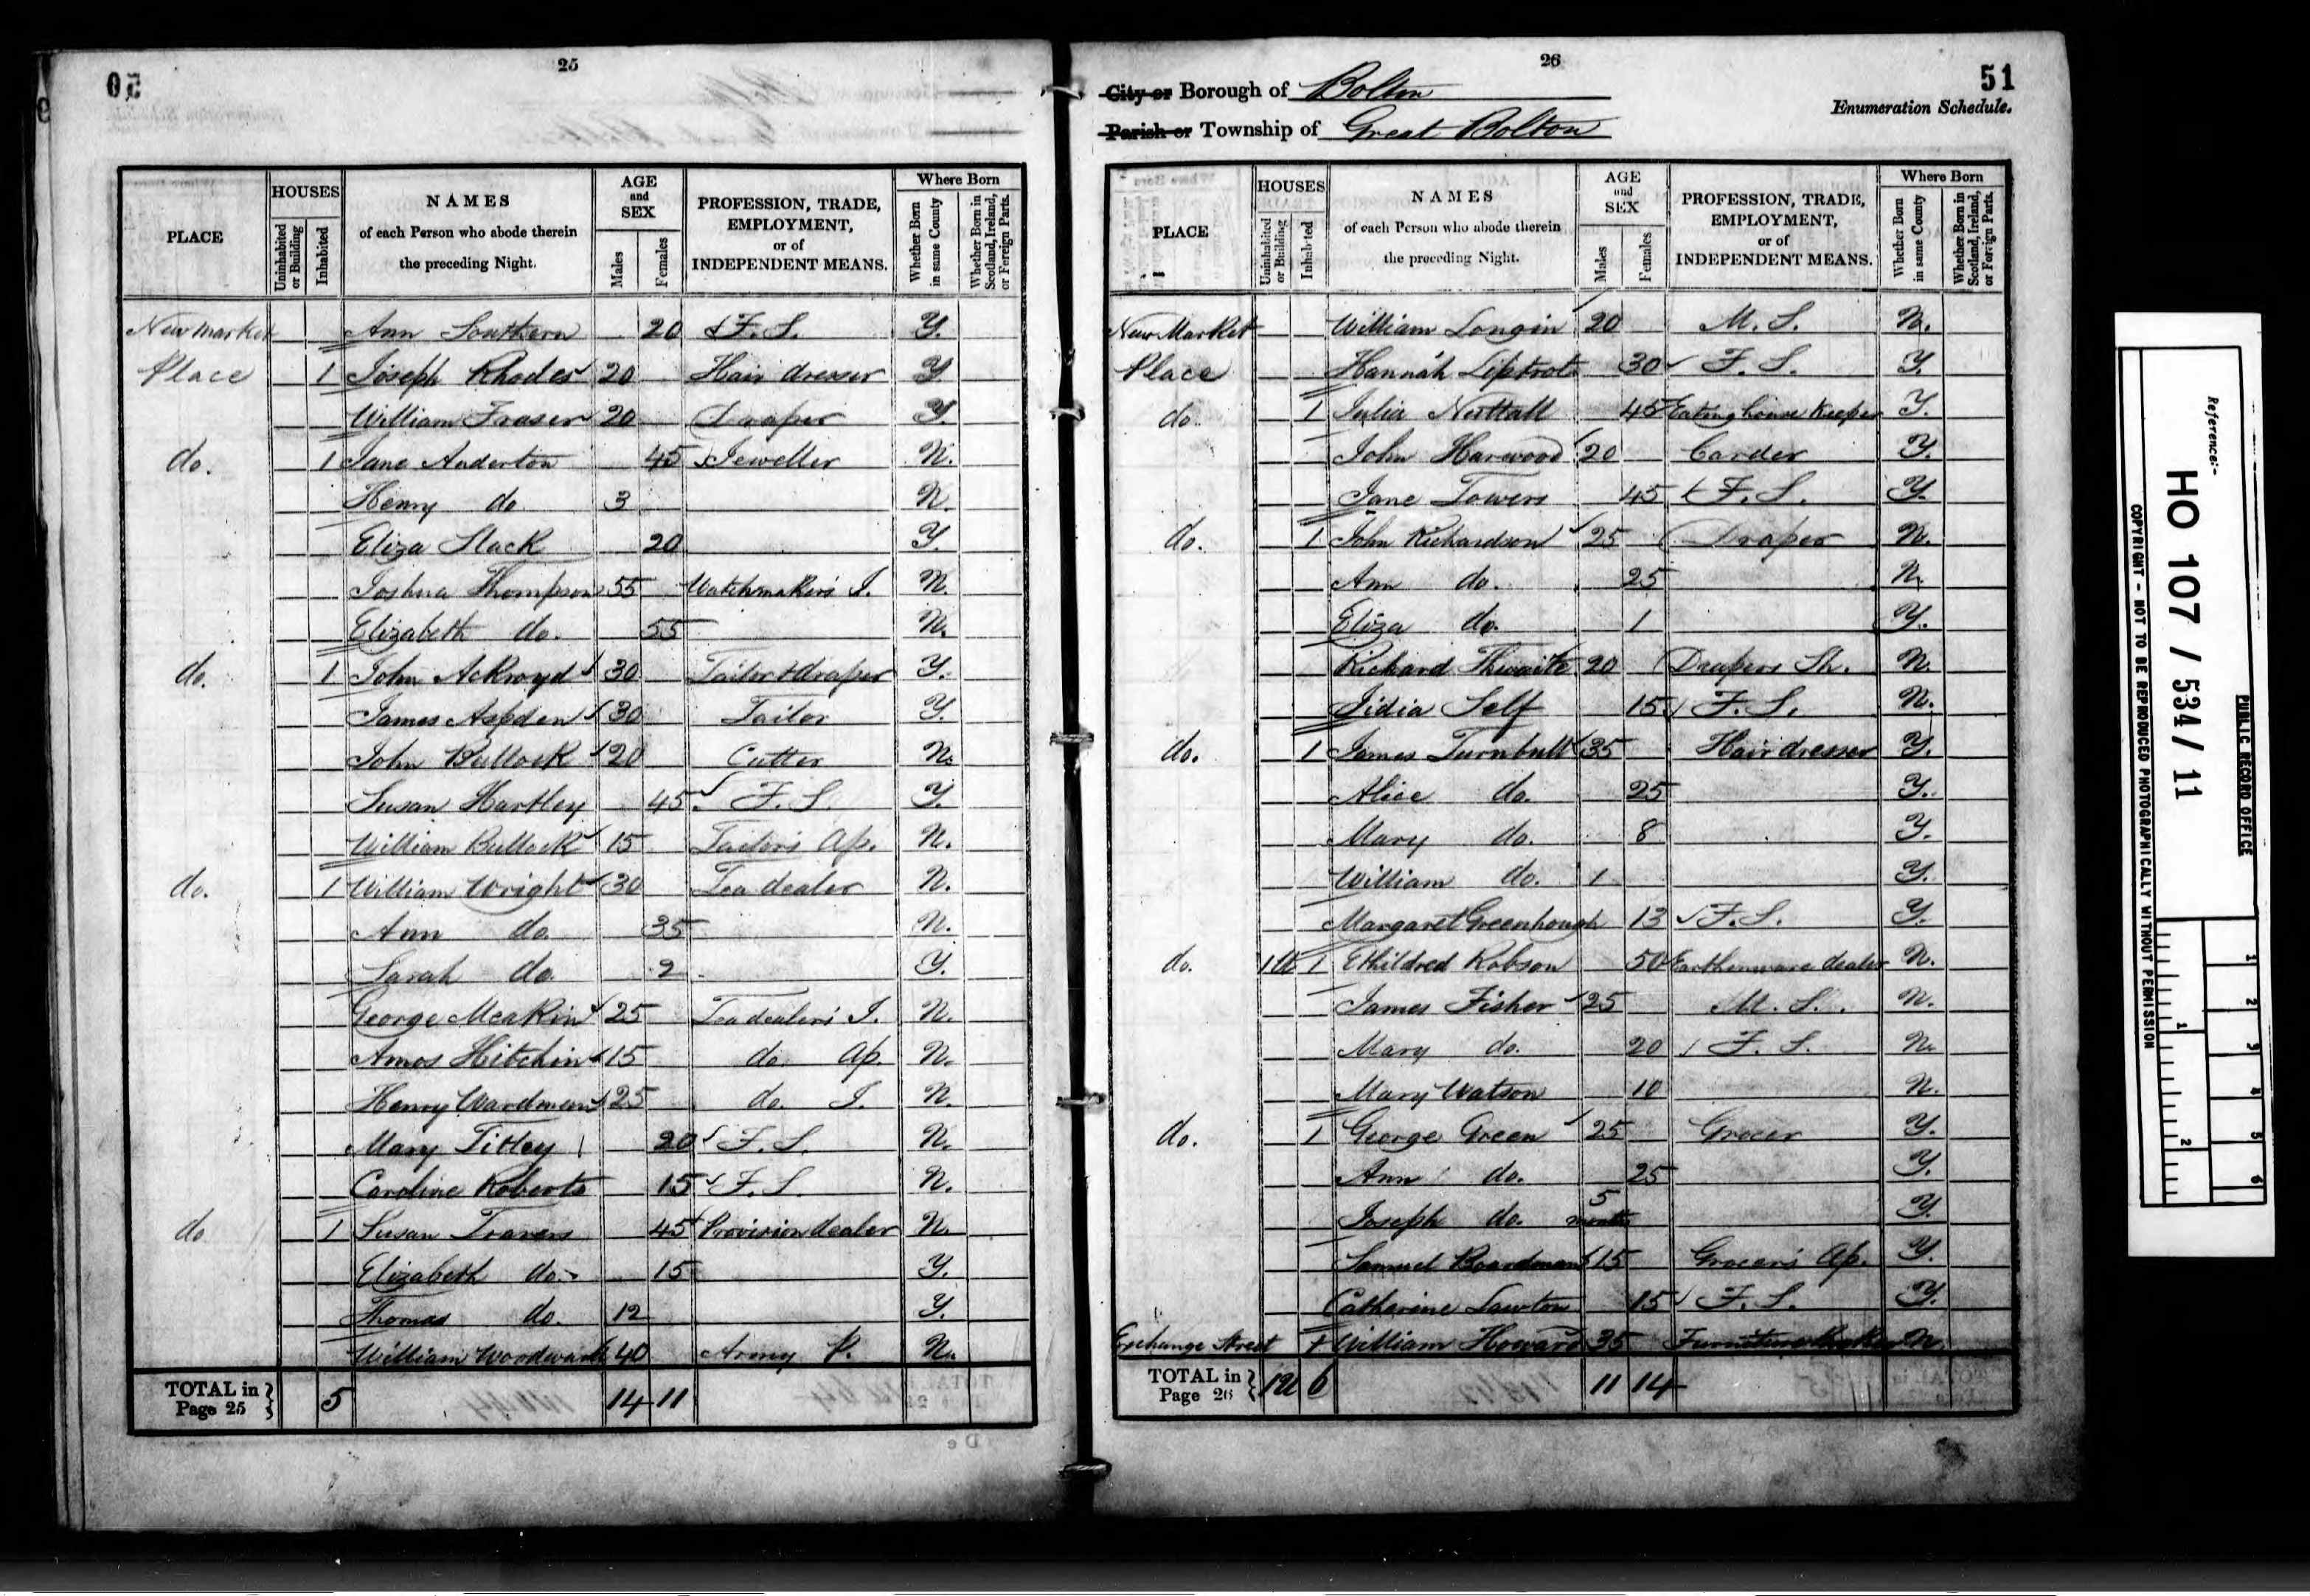 25
50
PLACE
HOUSES
Uninhabited or Building
Inhabited
NAMES
of each Person who abode therein
the preceding Night.
AGE
and
SEX
Males
Females
PROFESSION, TRADE,
EMPLOYMENT,
or of
INDEPENDENT MEANS.
Where Born
Whether Born in same County
Whether Born in Scotland, Ireland, or Foreign Parts.
New Market Ann Southern 20 F. S. Y.
Place 1 Joseph Rhodes 20 Hair dresser Y.
William Fraser 20 Draper Y.
do. 1 Jane Anderton 45 Jeweller N.
Henry do. 3 N.
Eliza Slack 20 Y.
Joshua Thompson 55 Watchmaker's J. N.
Elizabeth do. 55 N.
do. 1 John Ackroyd 30 Tailor & draper Y.
James Aspden 30 Tailor Y.
John Bullock 20 Cutter N.
Susan Hartley 45 F. S. Y.
William Bullock 15 Tailor's Ap. N.
do. 1 William Wright 30 Tea dealer N.
Ann do. 35 N.
Sarah do. 2 Y.
George Meakin 25 Tea dealer's J. N.
Amos Hitchin 15 do. Ap. N.
Henry Wardman 25 do. J. N.
Mary Titley 20 F. S. N.
Caroline Roberts 15 F. S. N.
do 1 Susan Travers 45 Provision dealer N.
Elizabeth do. 15 Y.
Thomas do. 12 Y.
William Woodward 40 Army P. N.
TOTAL in Page 25 5 14 11
26
51
City or Borough of Bolton
Enumeration Schedule.
Parish or Township of Great Bolton
PLACE
HOUSES
Uninhabited or Building
Inhabited
NAMES
of each Person who abode therein
the preceding Night.
AGE
and
SEX
Males
Females
PROFESSION, TRADE,
EMPLOYMENT,
or of
INDEPENDENT MEANS.
Where Born
Whether Born in same County
Whether Born in Scotland, Ireland, or Foreign Parts.
New Market William Longin 20 M. S. N.
Place Hannah Liptrot 30 F. S. Y.
do. 1 Julia Nuttall 45 Eatinghouse Keeper Y.
John Harwood 20 Carder Y.
Jane Towers 45 F. S. Y.
do. 1 John Richardson 25 Draper N.
Ann do. 25 N.
Eliza do. 1 Y.
Richard Thwaite 20 Drapers Sh. N.
Lidia Self 15 F. S. N.
do. 1 James Turnbull 35 Hair dresser Y.
Alice do. 25 Y.
Mary do. 8 Y.
William do. 1 Y.
Margaret Greenhough 13 F. S. Y.
do. 1U 1 Ethildred Robson 50 Earthenware dealer N.
James Fisher 25 M. S. N.
Mary do. 20 F. S. N.
Mary Watson 10 N.
do. 1 George Green 25 Grocer Y.
Ann do. 25 Y.
Joseph do. 5 months Y.
Samuel Boardman 15 Grocer's Ap. Y.
Catherine Lawton 15 F. S. Y.
Exchange Street 1 William Howard 35 Furniture Broker N.
TOTAL in Page 26 1U 6 11 14
Reference:-
HO 107 / 534 / 11
PUBLIC RECORD OFFICE
COPYRIGHT - NOT TO BE REPRODUCED PHOTOGRAPHICALLY WITHOUT PERMISSION
1 2 3 4 5 6
1 2